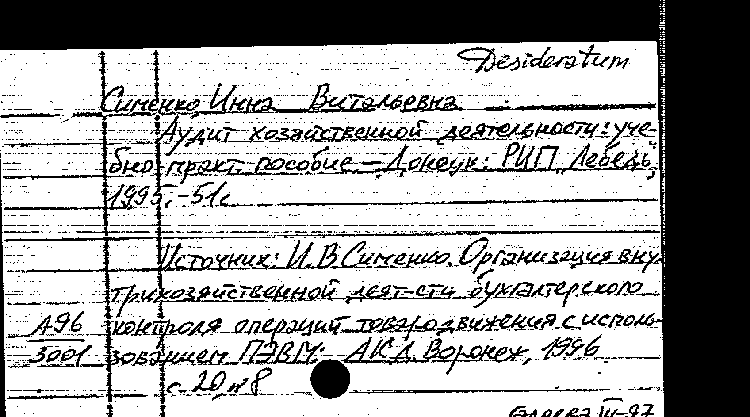 Desideratum
Сименко, Инна Витальевна
Аудит хозяйственной деятельности: уче-
бно-практ. пособие. – Донецк: РИП "Лебедь",
1995. – 51с
Источник: И.В. Сименко. Организация вну-
трихозяйственной деят-сти бухгалтерского
А96 контроля операций товародвижения с исполь-
3001 зованием ПЭВМ: АКД. Воронеж, 1996
с. 20, № 8
III-97